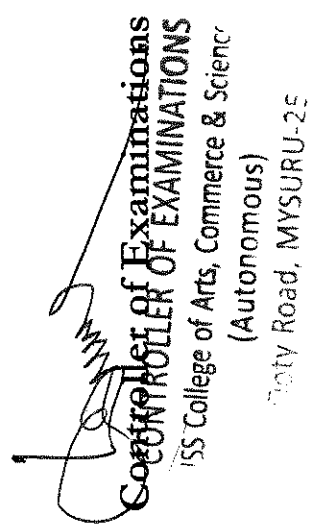 Controller of Examinations
CONTROLLER OF EXAMINATIONS
JSS College of Arts, Commerce & Science
(Autonomous)
Ooty Road, MYSURU-25